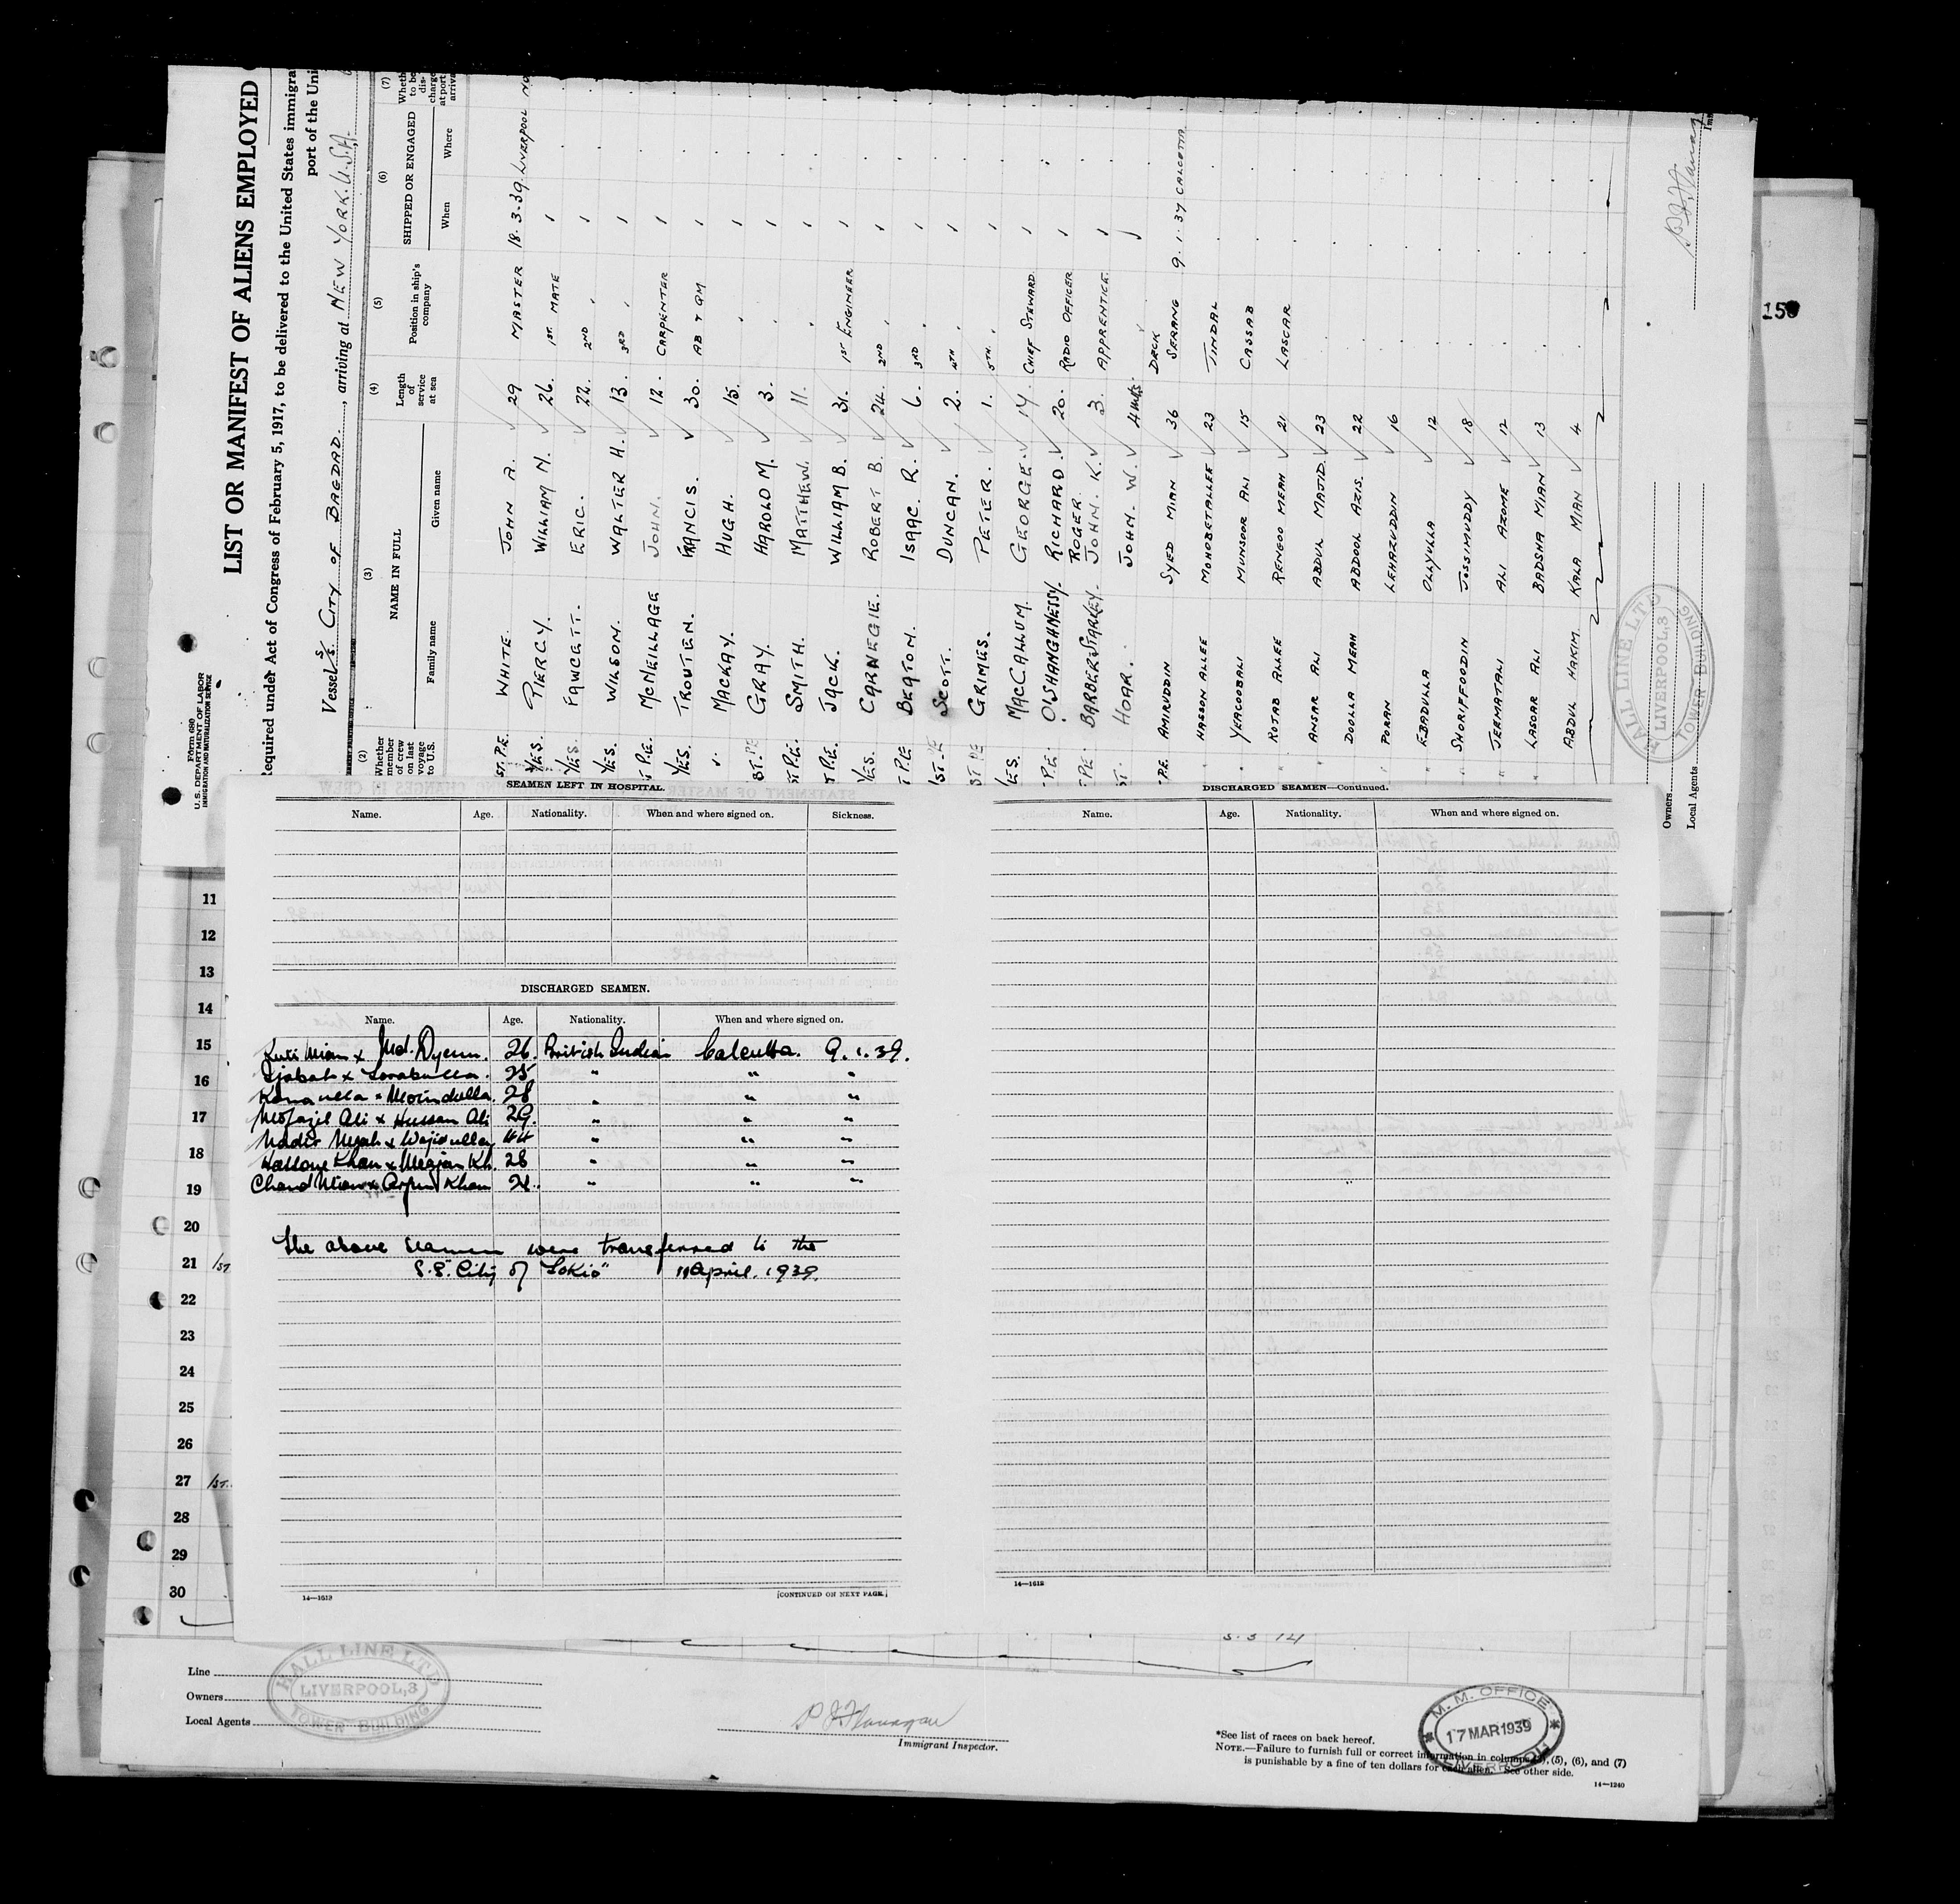 Form 680
U. S. DEPARTMENT OF LABOR
IMMIGRATION AND NATURALIZATION SERVICE
LIST OR MANIFEST OF ALIENS EMPLOYED
Required under Act of Congress of February 5, 1917, to be delivered to the United States immigra
port of the Uni
Vessel S/S. CITY OF BAGDAD., arriving at NEW YORK. U.S.A.
(2) (3) (4) (5) (6) (7)
Whether member of crew on last voyage to U.S. NAME IN FULL Family name Given name Length of service at sea Position in ship's company SHIPPED OR ENGAGED When Where Wheth to be dis- charge at port arriva
ST. P.E. WHITE. JOHN A. 29 MASTER 18.3.39. LIVERPOOL NO
YES. PIERCY. WILLIAM N. 26. 1ST. MATE
YES. FAWCETT. ERIC. 22. 2ND
YES. WILSON. WALTER H. 13. 3RD
T P.E. MCNEILLAGE JOHN. 12. CARPENTER
YES. TROUTEN. FRANCIS. 30. AB & QM
" MACKAY. HUGH. 15.
ST. PE GRAY. HAROLD M. 3.
ST P.E. SMITH. MATTHEW. 11.
T P.E. JACK. WILLIAM B. 31. 1ST ENGINEER
YES. CARNEGIE. ROBERT B. 24. 2ND
T P.E BEATON. ISAAC R. 6. 3RD
1ST. P.E SCOTT. DUNCAN. 2. 4TH
ST PE GRIMES. PETER. 1. 5TH.
YES. MACCALLUM. GEORGE. 14. CHIEF STEWARD.
P.E. O'SHANGHNESSY. RICHARD ROGER. 20. RADIO OFFICER
T P.E. BARBER STARKEY. JOHN. K. 3. APPRENTICE.
ST. HOAR. JOHN. W. 4 mts.
DECK
P.E. AMIRUDDIN SYED MIAN 36 SERANG 9.1.37 CALCUTTA
" HASSON ALLEE MOHOBETALLEE 23 TINDAL
" YEACOOBALI MUNSOOR ALI 15 CASSAB
" ROTAB ALLEE RENGOO MEAH 21 LASCAR
" ANSAR ALI ABDUL MAJID. 23
DOOLLA MEAH ABDOOL AZIS. 22
" PORAN LEHAZUDDIN 16
EBADULLA OLLYULLA 12
" SHORIFFOODIN JOSSIMUDDY 18
" JEEMATALI ALI AZOME 12
" LASCAR ALI BADSHA MIAN 13
" ABDUL HAKIM. KALA MIAN 4
Owners
Local Agents
HALL LINE LTD
LIVERPOOL, 3
TOWER BUILDING
150
SEAMEN LEFT IN HOSPITAL.
Name. Age. Nationality. When and where signed on. Sickness.
DISCHARGED SEAMEN.
Name. Age. Nationality. When and where signed on.
Mian x Md. 26. British Indian Calcutta. 9.1.39.
25 " " "
28 " " "
Mofazil Ali x Hussan Ali 29. " " "
Nadir Meah x Wajidullay 44 " " "
Khan x Meajan Kh. 28 " " "
Chand Mian x Khan 21. " " "
The above seamen were transferred to the
S.S. "City of Tokio" 11 April. 1939.
14—1613
[CONTINUED ON NEXT PAGE.]
DISCHARGED SEAMEN—Continued.
Name. Age. Nationality. When and where signed on.
14—1613
11
12
13
14
15
16
17
18
19
20
21 1ST.
22
23
24
25
26
27 1ST.
28
29
30
Line
Owners
Local Agents
HALL LINE LTD
LIVERPOOL, 3
TOWER BUILDING
P J Flanagan
Immigrant Inspector.
M. M. OFFICE
17 MAR 1939
LIVERPOOL
*See list of races on back hereof.
NOTE.—Failure to furnish full or correct information in columns (5), (6), and (7)
is punishable by a fine of ten dollars for each alien. See other side.
14—1240